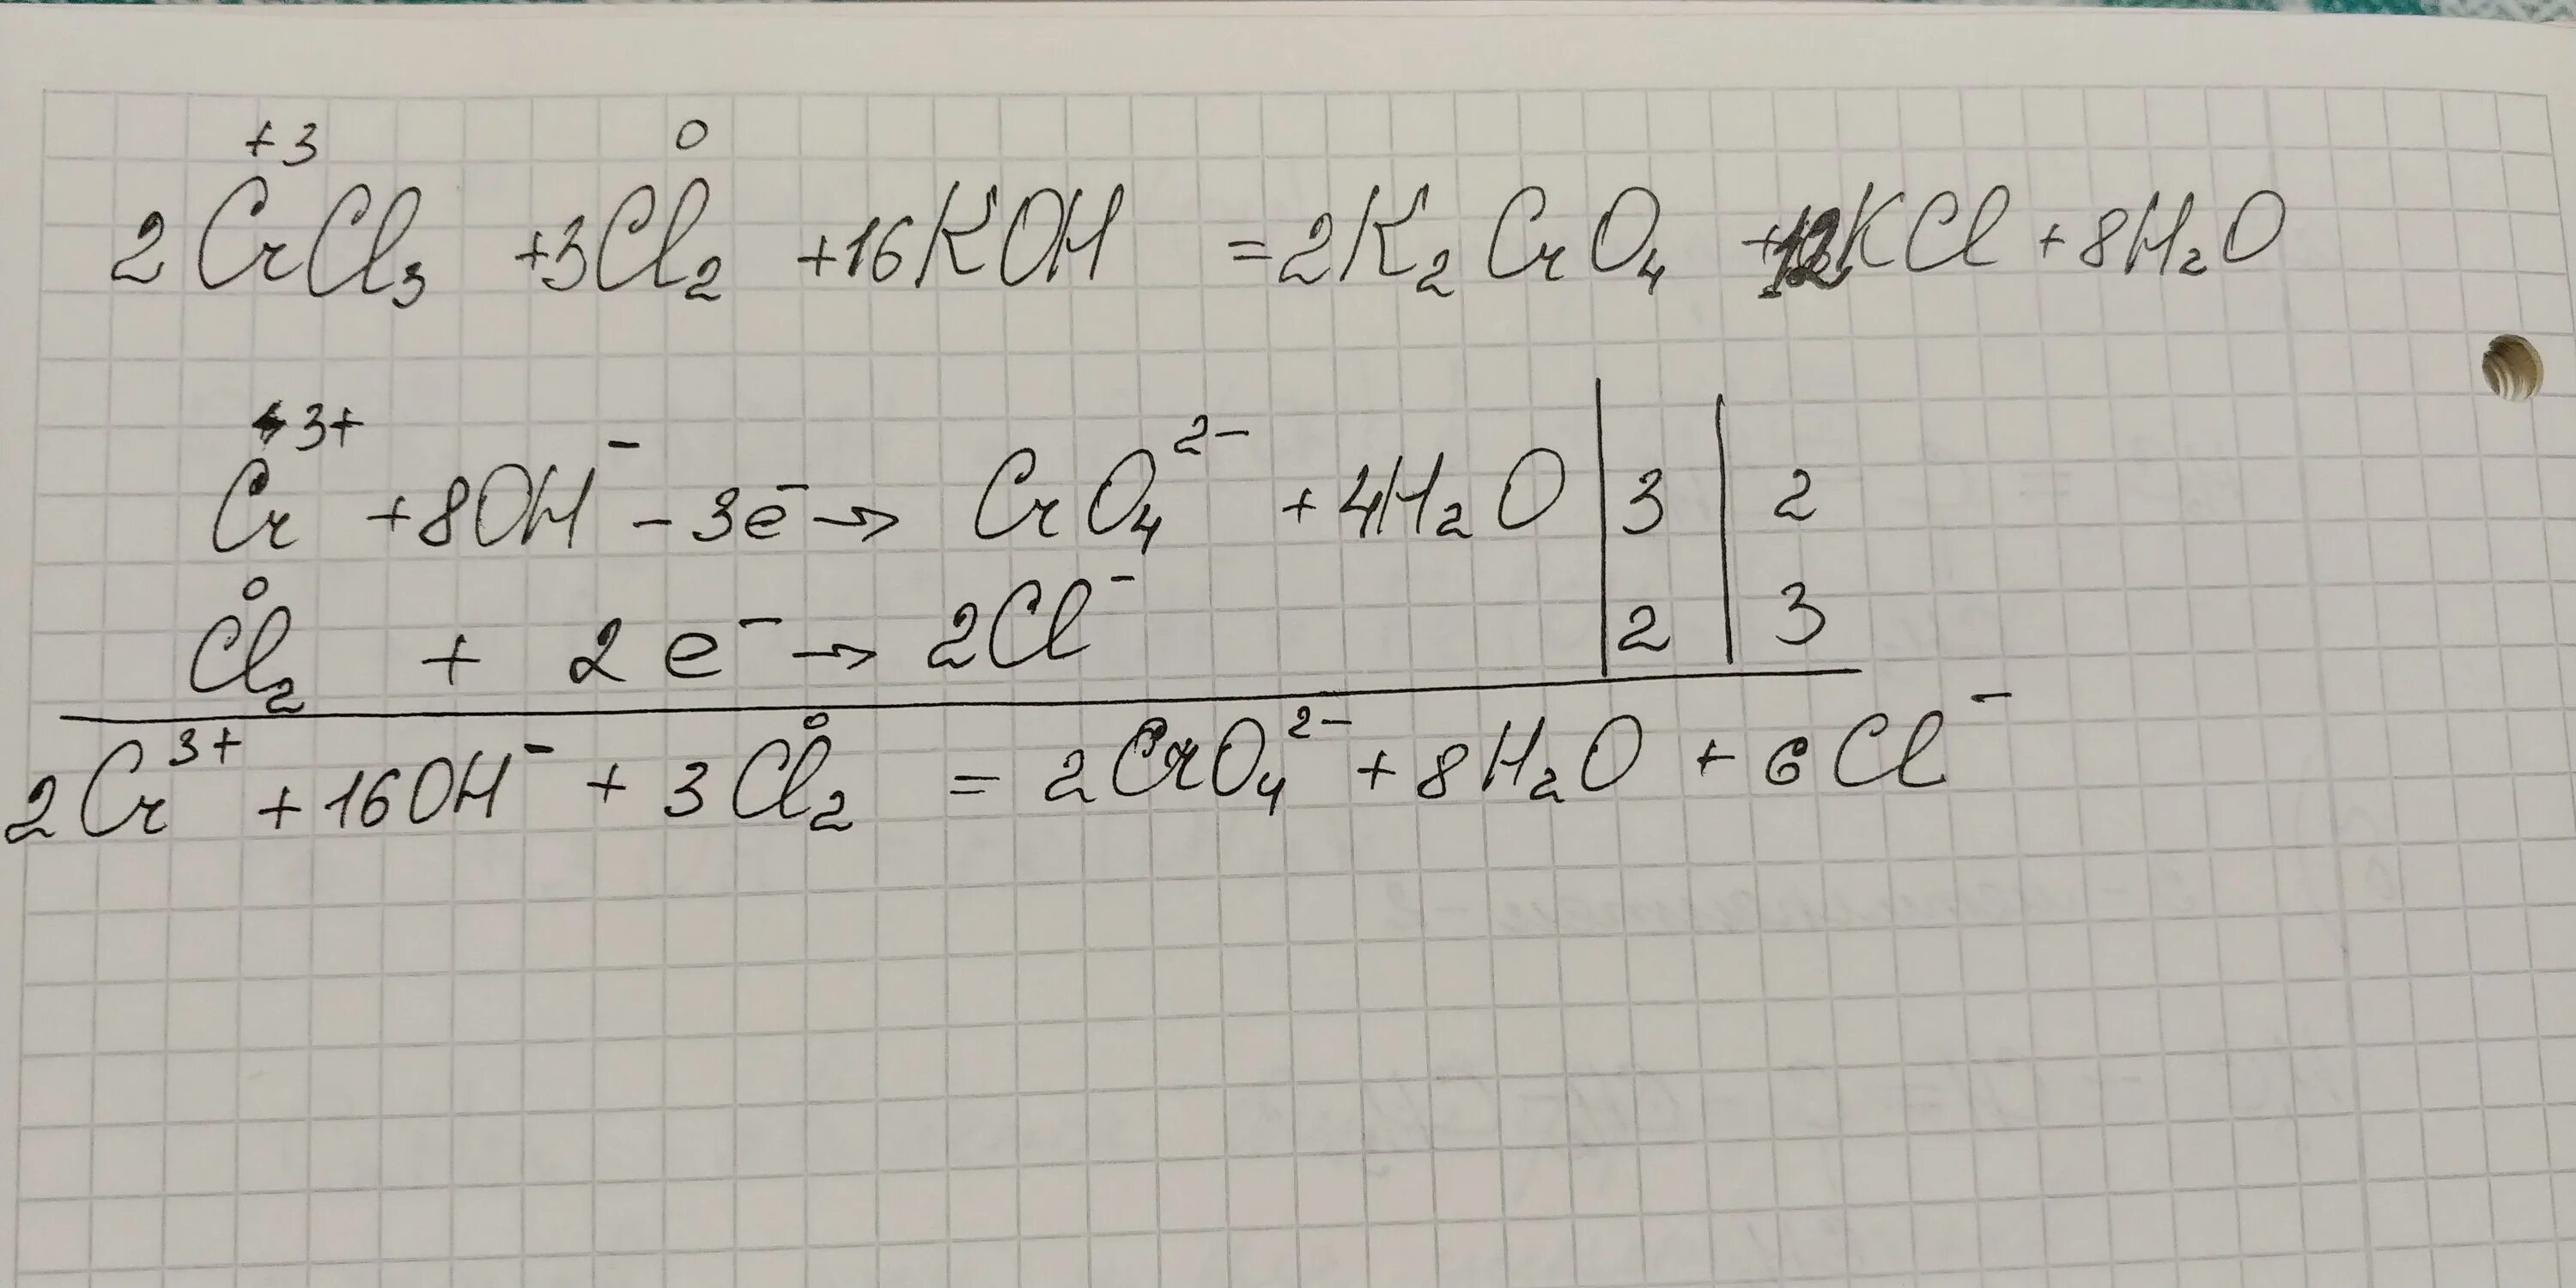 +3 0
2CrCl₃ +3Cl₂ +16KOH =2K₂CrO₄ +12KCl +8H₂O
Cr³⁺ +8OH⁻ -3e⁻→ CrO₄²⁻ +4H₂O | 3 | 2
Cl₂⁰ + 2e⁻→ 2Cl⁻ | 2 | 3
2Cr³⁺ +16OH⁻ + 3Cl₂⁰ = 2CrO₄²⁻ + 8H₂O + 6Cl⁻